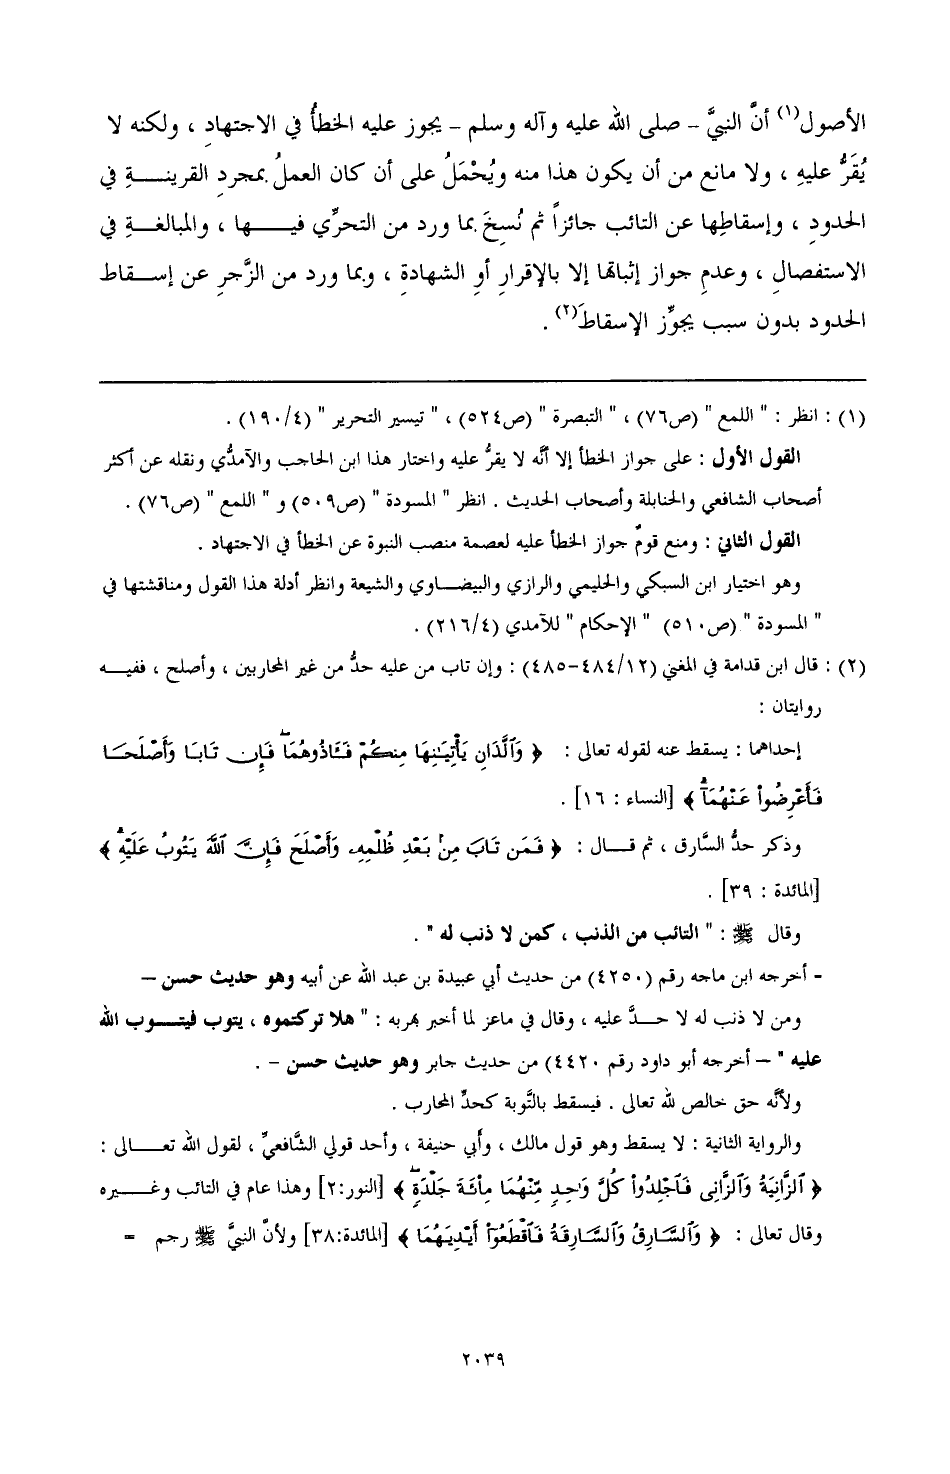 الأصول(١) أنَّ النبيَّ - صلى الله عليه وآله وسلم - يجوز عليه الخطأُ في الاجتهادِ ، ولكنه لا
يُقَرُّ عليهِ ، ولا مانع من أن يكون هذا منه ويُحْمَلُ على أن كان العملُ بمجردِ القرينـــة في
الحدودِ ، وإسقاطِها عن التائب جائزاً ثم نُسِخَ بما ورد من التحرِّي فيـــها ، والمبالغـــةِ في
الاستفصالِ ، وعدمِ جواز إثباتها إلا بالإقرارِ أوِ الشهادةِ ، وبما ورد من الزَّجرِ عن إســـقاط
الحدود بدون سبب يجوِّز الإسقاطَ(٢) .
(١) : انظر : " اللمع " (ص٧٦) ، " التبصرة " (ص٥٢٤) ، " تيسير التحرير " (١٩٠/٤) .
القول الأول : على جواز الخطأ إلا أنَّه لا يقرُّ عليه واختار هذا ابن الحاجب والآمديُّ ونقله عن أكثر
أصحاب الشافعي والحنابلة وأصحاب الحديث . انظر " المسودة " (ص٥٠٩) و " اللمع " (ص٧٦) .
القول الثاني : ومنع قومٌ جواز الخطأ عليه لعصمة منصب النبوة عن الخطأ في الاجتهاد .
وهو اختيار ابن السبكي والحليمي والرازي والبيضـاوي والشيعة وانظر أدلة هذا القول ومناقشتها في
" المسودة " (ص٥١٠) " الإحكام " للآمدي (٢١٦/٤) .
(٢) : قال ابن قدامة في المغني (٤٨٤/١٢-٤٨٥) : وإن تاب من عليه حدٌّ من غير المحاربين ، وأصلح ، ففيـــه
روايتان :
إحداهما : يسقط عنه لقوله تعالى : ﴿ وَٱلَّذَانِ يَأْتِيَـٰنِهَا مِنكُمْ فَـَٔاذُوهُمَا ۖ فَإِن تَابَا وَأَصْلَحَا
فَأَعْرِضُوا۟ عَنْهُمَآ ۗ ﴾ [النساء : ١٦] .
وذكر حدُّ السَّارق ، ثم قـــال : ﴿ فَمَن تَابَ مِنۢ بَعْدِ ظُلْمِهِۦ وَأَصْلَحَ فَإِنَّ ٱللَّهَ يَتُوبُ عَلَيْهِ ۗ ﴾
[المائدة : ٣٩] .
وقال ﷺ : " التائب من الذنب ، كمن لا ذنب له " .
- أخرجه ابن ماجه رقم (٤٢٥٠) من حديث أبي عبيدة بن عبد الله عن أبيه وهو حديث حسن –
ومن لا ذنب له لا حـــدَّ عليه ، وقال في ماعز لما أخبر بهربه : " هلا تركتموه ، يتوب فيتـــوب الله
عليه " – أخرجه أبو داود رقم ٤٤٢٠) من حديث جابر وهو حديث حسن - .
ولأنَّه حق خالص لله تعالى . فيسقط بالتَّوبة كحدِّ المحارب .
والرواية الثانية : لا يسقط وهو قول مالك ، وأبي حنيفة ، وأحد قولي الشَّافعيِّ ، لقول الله تعـــالى :
﴿ ٱلزَّانِيَةُ وَٱلزَّانِى فَٱجْلِدُوا۟ كُلَّ وَٰحِدٍ مِّنْهُمَا مِا۟ئَةَ جَلْدَةٍ ۖ ﴾ [النور:٢] وهذا عام في التائب وغـــيره
وقال تعالى : ﴿ وَٱلسَّارِقُ وَٱلسَّارِقَةُ فَٱقْطَعُوٓا۟ أَيْدِيَهُمَا ﴾ [المائدة:٣٨] ولأنَّ النبيَّ ﷺ رجم =
٢٠٣٩